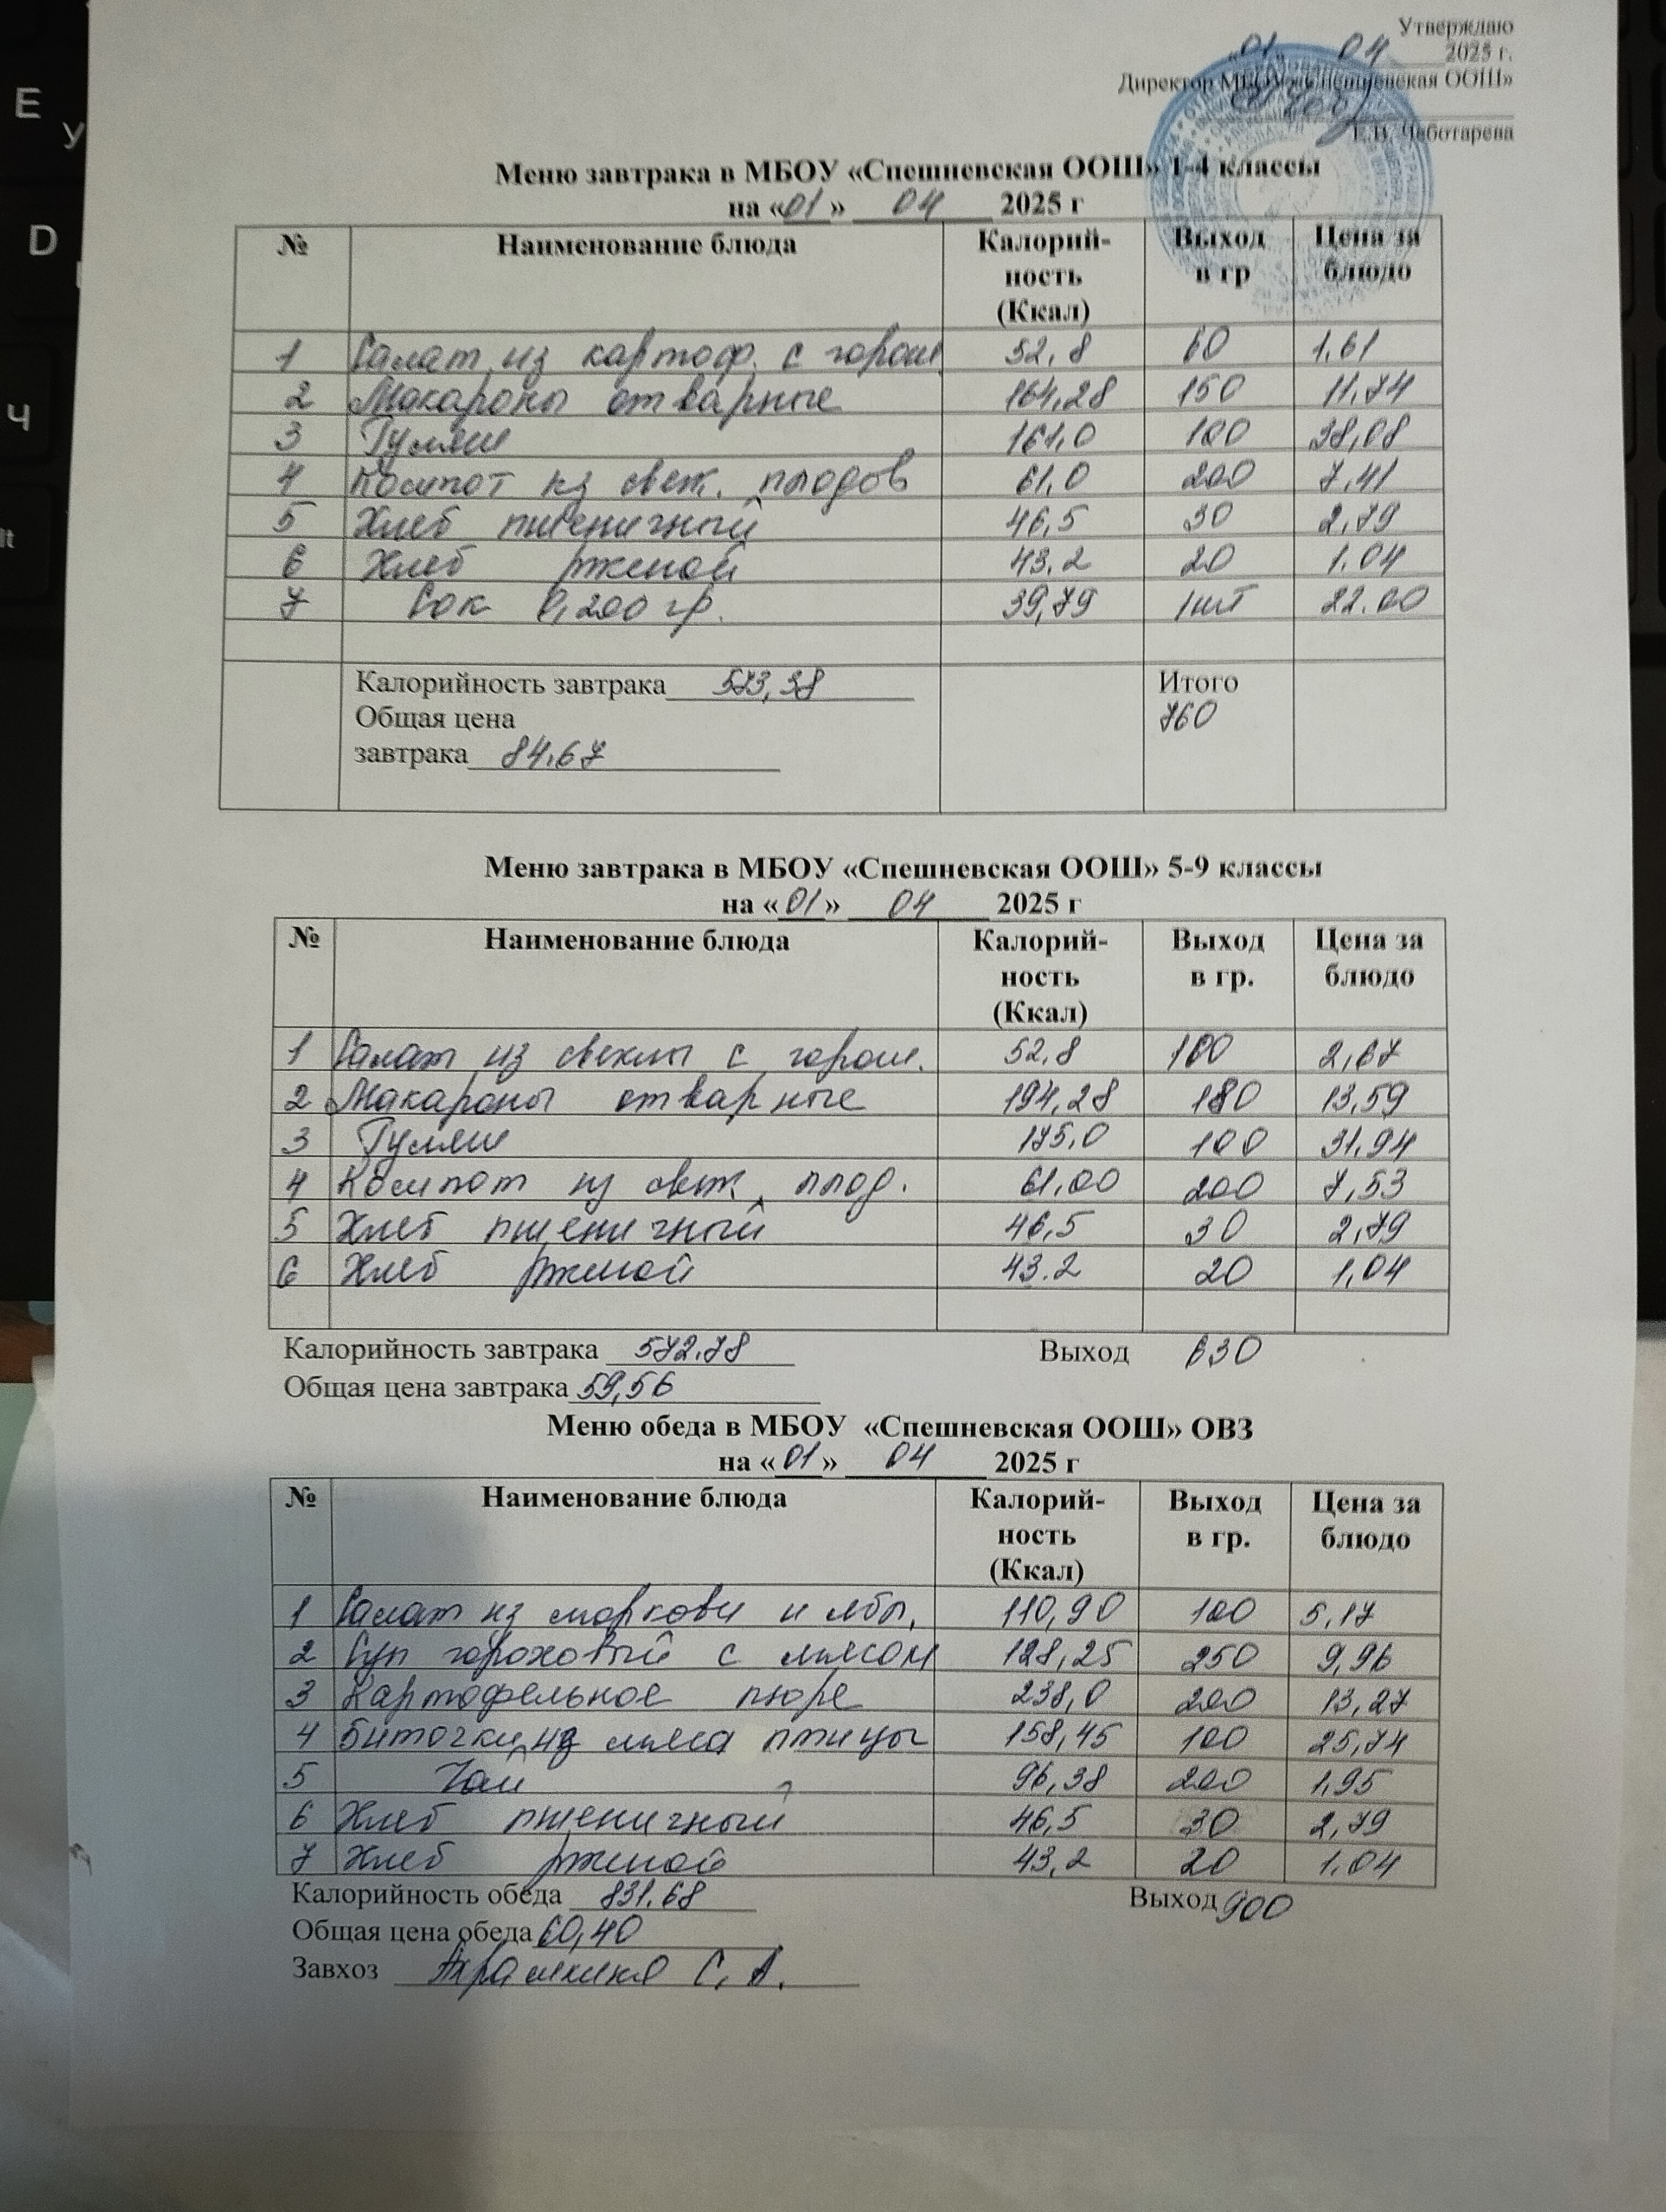 Утверждаю
«01» 04 2025 г.
Директор МБОУ «Спешневская ООШ»
Е.В. Чеботарева
Меню завтрака в МБОУ «Спешневская ООШ» 1-4 классы
на «01» 04 2025 г
№ Наименование блюда Калорий-ность (Ккал) Выход в гр Цена за блюдо
1 Салат из картоф. с горош. 52,8 60 1,61
2 Макароны отварные 164,28 150 11,74
3 Гуляш 161,0 100 38,08
4 Компот из свеж. плодов 61,0 200 7,41
5 Хлеб пшеничный 46,5 30 2,79
6 Хлеб ржаной 43,2 20 1.04
7 Сок 0,200 гр. 39,79 1шт 22.00
Калорийность завтрака 573,38 Итого
Общая цена 760
завтрака 84,67
Меню завтрака в МБОУ «Спешневская ООШ» 5-9 классы
на «01» 04 2025 г
№ Наименование блюда Калорий-ность (Ккал) Выход в гр. Цена за блюдо
1 Салат из свеклы с горош. 52,8 100 2,67
2 Макароны отварные 194,28 180 13,59
3 Гуляш 175,0 100 31,94
4 Компот из свеж. плод. 61,00 200 7,53
5 Хлеб пшеничный 46,5 30 2,79
6 Хлеб ржаной 43.2 20 1,04
Калорийность завтрака 572.78 Выход 630
Общая цена завтрака 59,56
Меню обеда в МБОУ «Спешневская ООШ» ОВЗ
на «01» 04 2025 г
№ Наименование блюда Калорий-ность (Ккал) Выход в гр. Цена за блюдо
1 Салат из моркови и ябл. 110,90 100 5,17
2 Суп гороховый с мясом 128,25 250 9,96
3 Картофельное пюре 238,0 200 13,27
4 Биточки из мяса птицы 158,45 100 25,74
5 Чай 96,38 200 1,95
6 Хлеб пшеничный 46,5 30 2,79
7 Хлеб ржаной 43,2 20 1.04
Калорийность обеда 831.68 Выход 900
Общая цена обеда 60,40
Завхоз С. А.